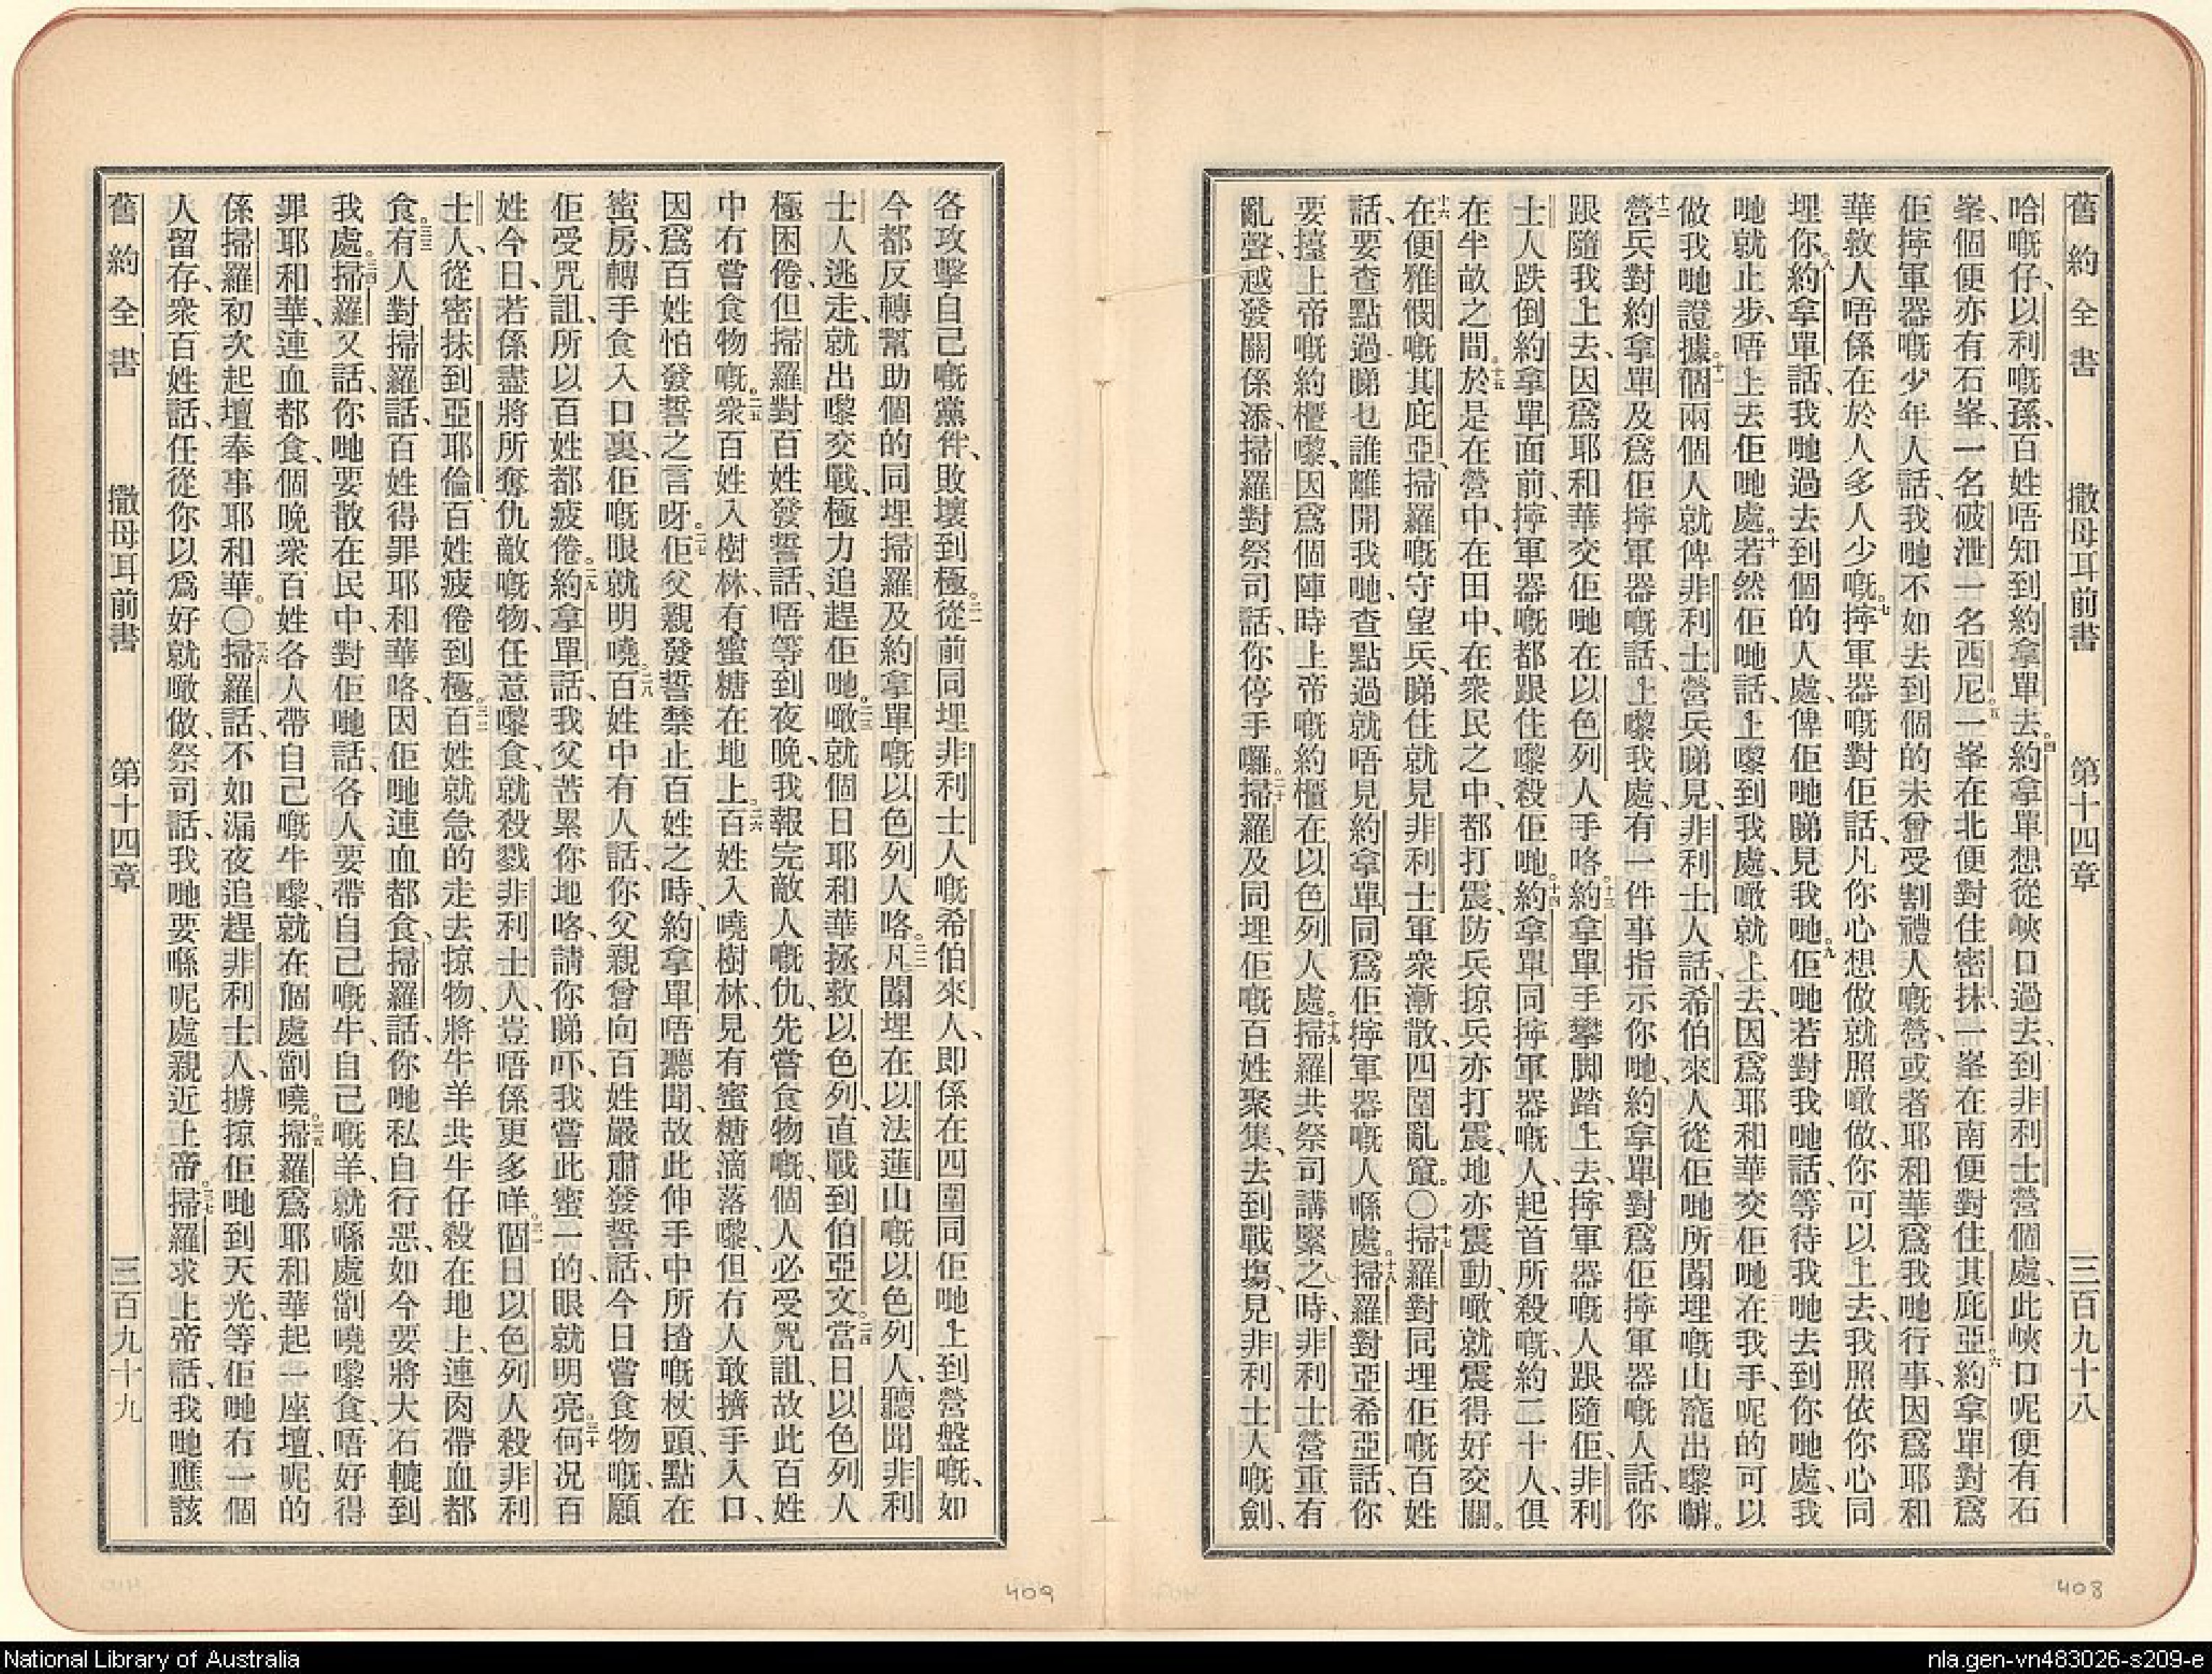 舊約全書　撒母耳前書　第十四章　三百九十八
哈嘅仔、以利嘅孫、百姓唔知到約拿單去。四約拿單想從峽口過去、到非利士營個處、此峽口呢便有石
峯、個便亦有石峯、一名破泄、一名西尼。五一峯在北便對住密抹、一峯在南便對住其庇亞。六約拿單對爲
佢擰軍器嘅少年人話、我哋不如去到個的未曾受割禮人嘅營、或者耶和華爲我哋行事、因爲耶和
華救人唔係在於人多人少嘅。七擰軍器嘅對佢話、凡你心想做就照噉做、你可以上去、我照依你心同
埋你。八約拿單話、我哋過去到個的人處、俾佢哋睇見我哋。九佢哋若對我哋話、等待我哋去到你哋處、我
哋就止步、唔上去佢哋處。十若然佢哋話、上嚟到我處、噉就上去、因爲耶和華交佢哋在我手、呢的可以
做我哋證據。十一個兩個人就俾非利士營兵睇見、非利士人話、希伯來人從佢哋所匿埋嘅山窿出嚟嘞。
十二營兵對約拿單及爲佢擰軍器嘅話、上嚟我處、有一件事指示你哋、約拿單對爲佢擰軍器嘅人話、你
跟隨我上去、因爲耶和華交佢哋在以色列人手咯。十三約拿單手攀脚踏上去、擰軍器嘅人跟隨佢、非利
士人跌倒約拿單面前、擰軍器嘅都跟住嚟殺佢哋。十四約拿單同擰軍器嘅人、起首所殺嘅、約二十人、俱
在半畝之間。十五於是在營中、在田中、在衆民之中、都打震、防兵掠兵亦打震、地亦震動、噉就震得好交關。
十六在便雅憫嘅其庇亞、掃羅嘅守望兵、睇住就見非利士軍衆漸散、四圍亂竄。〇十七掃羅對同埋佢嘅百姓
話、要查點過睇乜誰離開我哋、查點過就唔見約拿單同爲佢擰軍器嘅人喺處。十八掃羅對亞希亞話、你
要擡上帝嘅約櫃嚟、因爲個陣時上帝嘅約櫃在以色列人處。十九掃羅共祭司講緊之時、非利士營重有
亂聲、越發關係添、掃羅對祭司話、你停手囉。二十掃羅及同埋佢嘅百姓聚集、去到戰塲、見非利士人嘅劍、
408
各攻擊自己嘅黨伴、敗壞到極。二一從前同埋非利士人嘅希伯來人、即係在四圍同佢哋上到營盤嘅、如
今都反轉幫助個的同埋掃羅及約拿單嘅以色列人咯。二二凡匿埋在以法蓮山嘅以色列人、聽聞非利
士人逃走、就出嚟交戰、極力追趕佢哋。二三噉就個日耶和華拯救以色列、直戰到伯亞文。二四當日以色列人
極困倦、但掃羅對百姓發誓話、唔等到夜晚、我報完敵人嘅仇、先嘗食物嘅、個人必受咒詛、故此百姓
中冇嘗食物嘅。二五衆百姓入樹林、有蜜糖在地上。二六百姓入嘵樹林、見有蜜糖滴落嚟、但冇人敢擠手入口、
因爲百姓怕發誓之言呀。二七佢父親發誓禁止百姓之時、約拿單唔聽聞、故此伸手中所揸嘅杖頭、點在
蜜房、轉手食入口裏、佢嘅眼就明嘵。二八百姓中有人話、你父親曾向百姓嚴肅發誓話、今日嘗食物嘅、願
佢受咒詛、所以百姓都疲倦。二九約拿單話、我父苦累你地咯、請你睇吓、我嘗此蜜一的、眼就明亮。三十何况百
姓今日、若係盡將所奪仇敵嘅物、任意嚟食、就殺戮非利士人、豈唔係更多咩。三一個日以色列人殺非利
士人、從密抹到亞耶倫、百姓疲倦到極。三二百姓就急的走去掠物、將牛羊共牛仔殺在地上、連肉帶血都
食。三三有人對掃羅話、百姓得罪耶和華咯、因佢哋連血都食、掃羅話、你哋私自行惡、如今要將大石轆到
我處。三四掃羅又話、你哋要散在民中、對佢哋話、各人要帶自己嘅牛、自己嘅羊、就喺處劏嘵嚟食、唔好得
罪耶和華、連血都食、個晚衆百姓各人帶自己嘅牛嚟、就在個處劏嘵。三五掃羅爲耶和華起一座壇、呢的
係掃羅初次起壇奉事耶和華。〇三六掃羅話、不如漏夜追趕非利士人、擄掠佢哋到天光、等佢哋冇一個
人留存、衆百姓話、任從你以爲好就噉做、祭司話、我哋要喺呢處親近上帝。三七掃羅求上帝話、我哋應該
舊約全書　撒母耳前書　第十四章　三百九十九
409
National Library of Australia
nla.gen-vn483026-s209-e